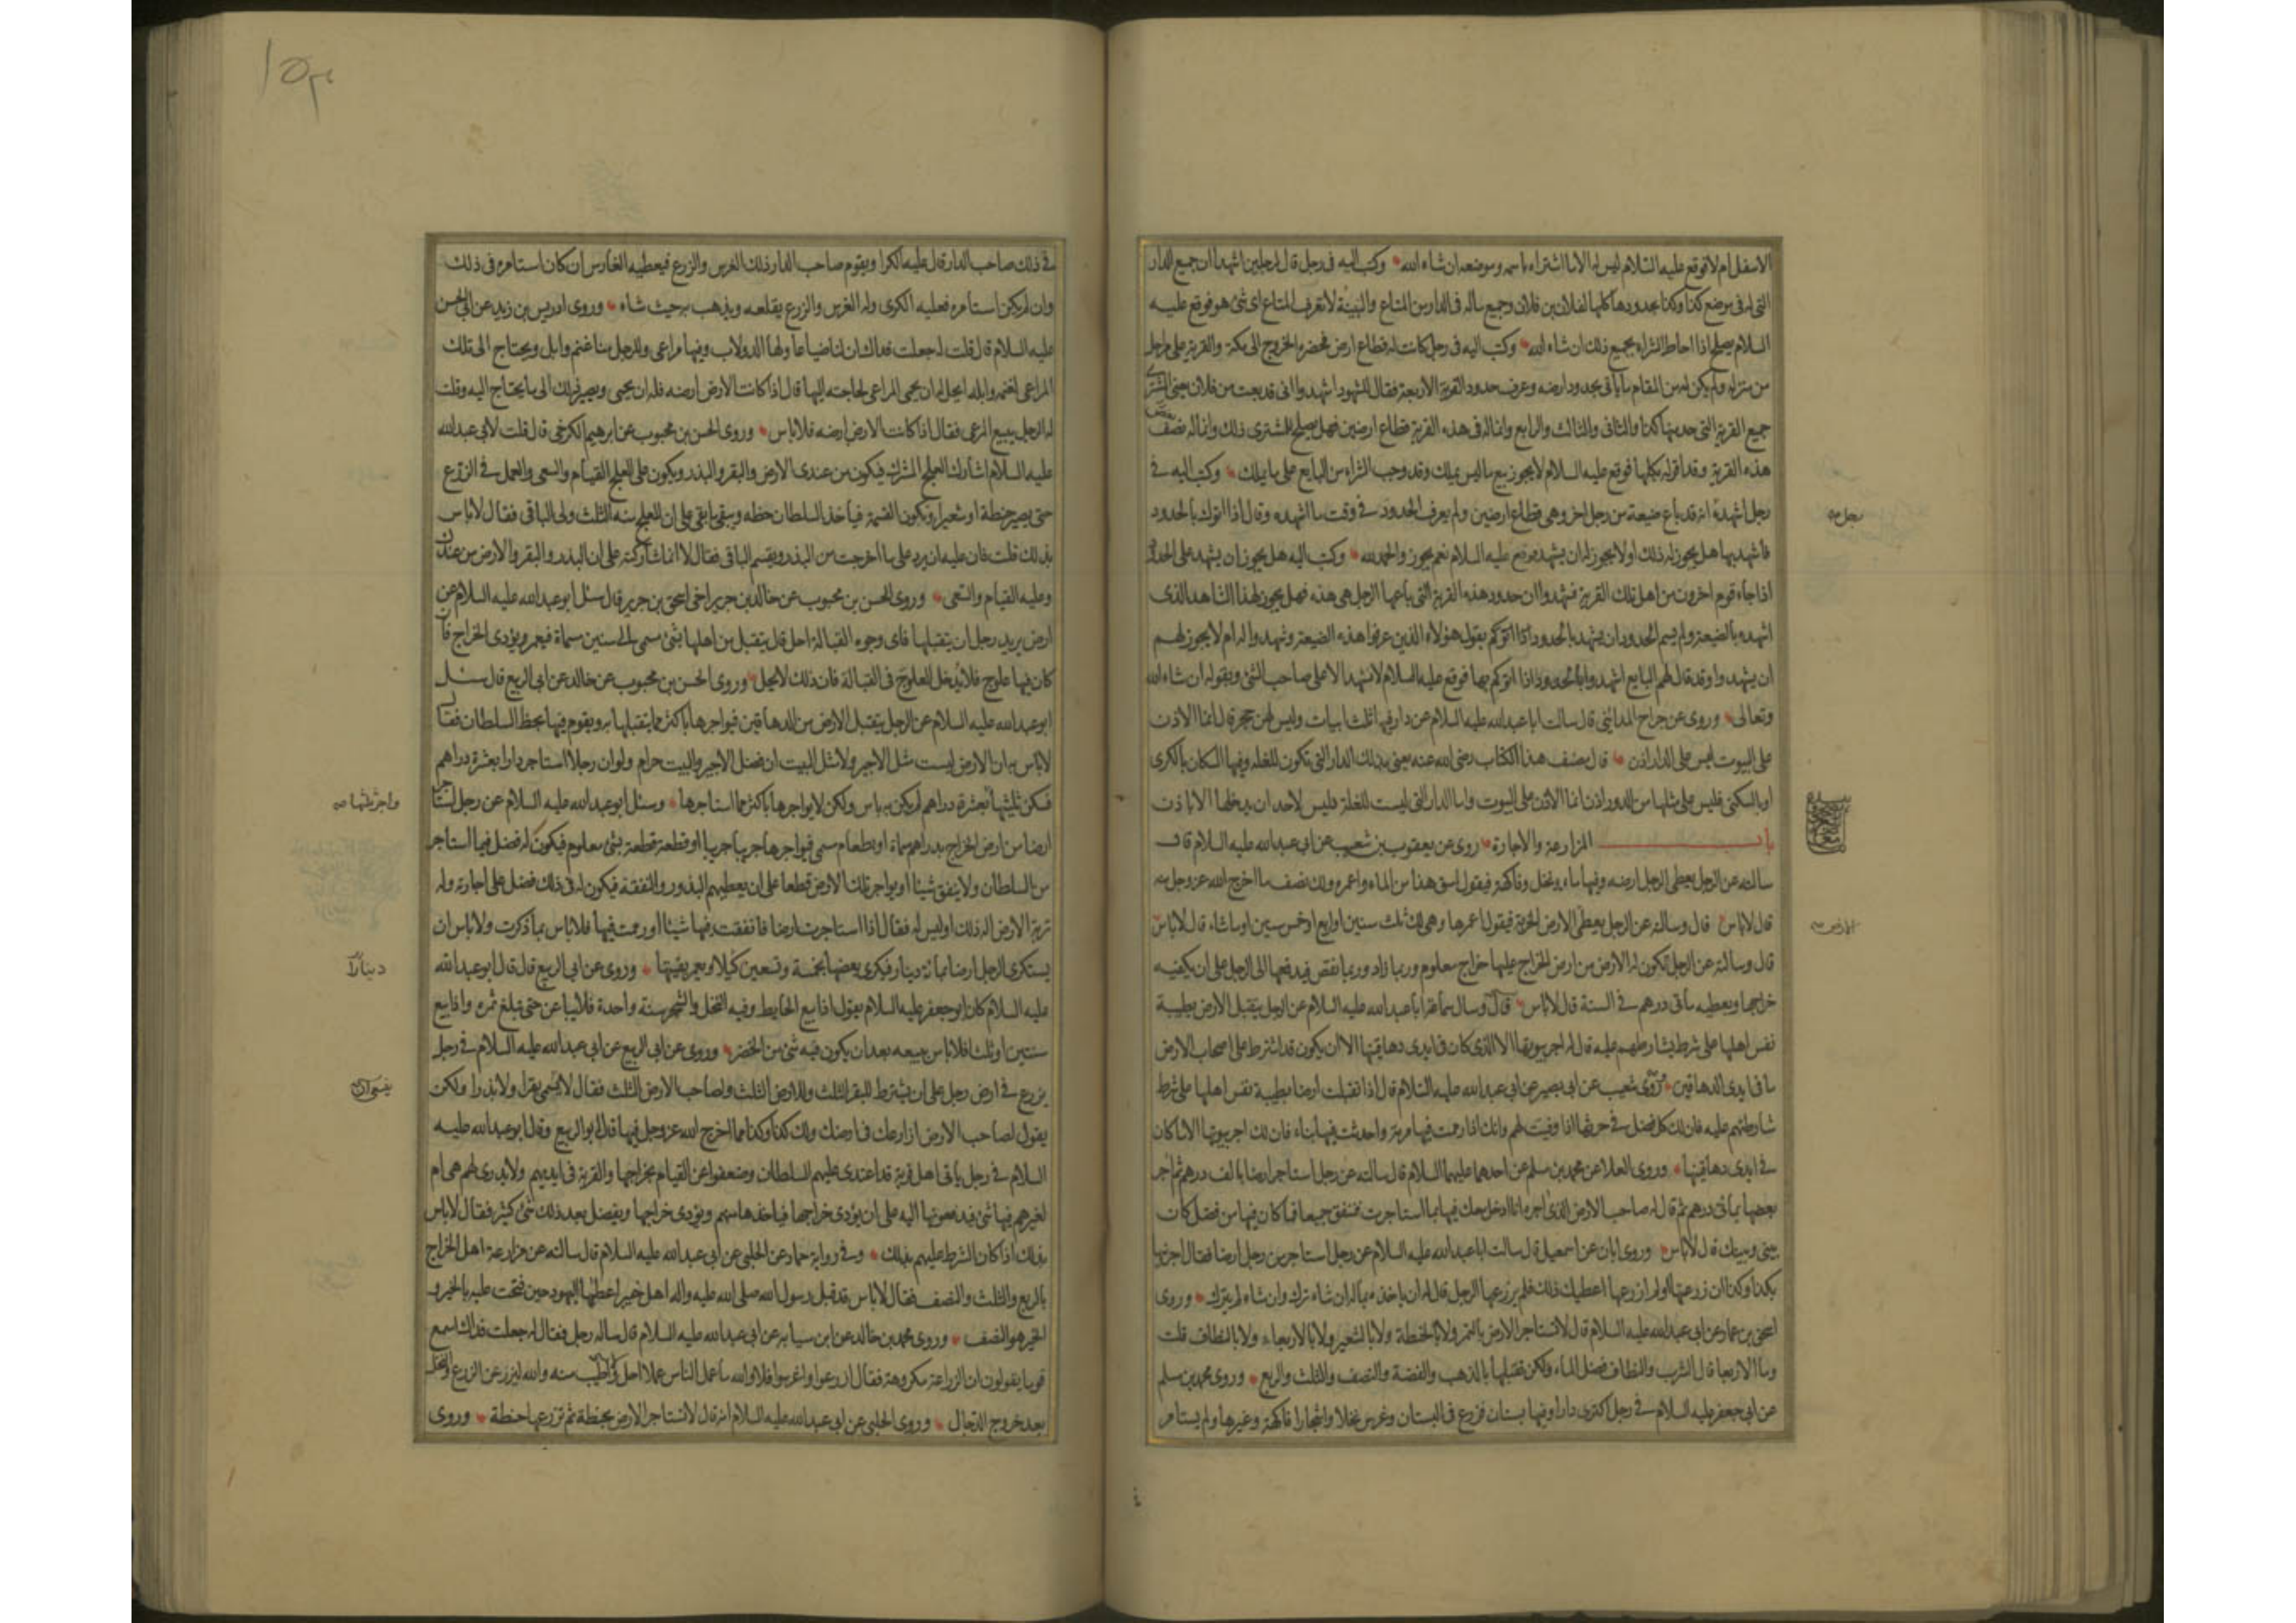 الاسفل ام لا فوقع عليه السلام ليس له الا ما اشتراه باسمه وموضعه ان شاء الله وكتب اليه فى رجل قال لرجلين اشهدا ان جميع الدار
التى له فى موضع كذا وكذا بحدودها كلها لفلان بن فلان وجميع ماله فى الدار من المتاع والبينة لا تعرف المتاع اى شئ هو فوقع عليه
السلام يصلح اذا احاط الشراء بجميع ذلك ان شاء الله وكتب اليه فى رجل كانت له قطاع ارض فحضره الخروج الى مكة والقرية على مراحل
من منزله ولم يكن له من المقام ما ياتى بحدود ارضه وعرف حدود القرية الاربعة فقال للشهود اشهدوا انى قد بعت من فلان يعنى المشترى
جميع القرية التى حد منها كذا والثانى والثالث والرابع وانما له فى هذه القرية قطاع ارضين فهل يصلح للمشترى ذلك وانما له بعض
هذه القرية وقد اقر له بكلها فوقع عليه السلام لا يجوز بيع ما ليس يملك وقد وجب الشراء من البايع على ما يملك وكتب اليه فى
رجل اشهده انه قد باع ضيعة من رجل اخر وهى قطاع ارضين ولم يعرف الحدود فى وقت ما اشهده وقال اذا اتوك بالحدود
فاشهد بها هل يجوز له ذلك او لا يجوز له ان يشهد فوقع عليه السلام نعم يجوز والحمد لله وكتب اليه هل يجوز ان يشهد على الحدود
اذا جاء قوم اخرون من اهل تلك القرية فشهدوا ان حدود هذه القرية التى باعها الرجل هى هذه فهل يجوز لهذا الشاهد الذى
اشهده بالضيعة ولم يسم الحدود ان يشهد بالحدود اذا اتوكم بقول هؤلاء الذين عرفوا هذه الضيعة وشهدوا له ام لا يجوز لهم
ان يشهدوا وقد قال لهم البايع اشهدوا بالحدود اذا اتوكم بها فوقع عليه السلام لا تشهد الا على صاحب الشئ وبقوله ان شاء الله
وتعالى وروى عن جراح المدائنى قال سالت ابا عبد الله عليه السلام عن دار فيها ثلث ابيات وليس لهن حجر قال انما الاذن
على البيوت ليس على الدار اذن قال مصنف هذا الكتاب رضى الله عنه يعنى بذلك الدار التى تكون للغلة وفيها السكان بالكرى
او بالسكنى فليس على مثلها من الدور اذن انما الاذن على البيوت واما الدار التى ليست للغلة فليس لاحد ان يدخلها الا باذن
باب المزارعة والاجارة روى عن يعقوب بن شعيب عن ابى عبد الله عليه السلام قال
سالته عن الرجل يعطى الرجل ارضه وفيها ماء ونخل وفاكهة فيقول اسق هذا من الماء واعمره ولك نصف ما اخرج الله عز وجل منه
قال لا باس قال وسالته عن الرجل يعطى الارض الخربة فيقول اعمرها وهى لك ثلث سنين او اربع او خمس سنين او ما شاء قال لا باس
قال وسالته عن الرجل تكون له الارض من ارض الخراج عليها خراج معلوم وربما زاد وربما نقص فيدفعها الى الرجل على ان يكفيه
خراجها ويعطيه مأتى درهم فى السنة قال لا باس قال وسال سماعة ابا عبد الله عليه السلام عن الرجل يتقبل الارض بطيبة
نفس اهلها على شرط يشارطهم عليه قال له اجر بيوتها الا الذى كان فى ايدى دهاقينها الا ان يكون قد اشترط على اصحاب الارض
ما فى ايدى الدهاقين وروى شعيب عن ابى بصير عن ابى عبد الله عليه السلام قال اذا تقبلت ارضا بطيبة نفس اهلها على شرط
شارطتهم عليه فان لك كل فضل فى حرثها اذا وفيت لهم وانك اذا رممت فيها مرمة واحدثت فيها بناء فان لك اجر بيوتها الا ما كان
فى ايدى دهاقينها وروى العلا عن محمد بن مسلم عن احدهما عليهما السلام قال سالته عن رجل استاجر ارضا بالف درهم ثم آجر
بعضها بمأتى درهم ثم قال له صاحب الارض الذى اجره انا ادخل معك فيها بما استاجرت فننفق جميعا فما كان فيها من فضل كان
بينى وبينك قال لا باس وروى ابان عن اسمعيل قال سالت ابا عبد الله عليه السلام عن رجل استاجر من رجل ارضا فقال اجرنيها
بكذا وكذا ان زرعتها او لم ازرعها اعطيك ذلك فلم يزرعها الرجل قال له ان ياخذه بماله ان شاء ترك وان شاء لم يترك وروى
اسحق بن عمار عن ابى عبد الله عليه السلام قال لا تستاجر الارض بالتمر ولا بالحنطة ولا بالشعير ولا بالاربعاء ولا بالنطاف قلت
وما الاربعا قال الشرب والنطاف فضل الماء ولكن تقبلها بالذهب والفضة والنصف والثلث والربع وروى محمد بن مسلم
عن ابى جعفر عليه السلام فى رجل اكترى دارا وفيها بستان فزرع فى البستان وغرس نخلا واشجارا فاكهة وغيرها ولم يستامر
رجل
الارض
فى ذلك صاحب الدار قال عليه الكرا ويقوم صاحب الدار ذلك الغرس والزرع فيعطيه الغارس ان كان استامره فى ذلك
وان لم يكن استامره فعليه الكرى وله الغرس والزرع يقلعه ويذهب به حيث شاء وروى ادريس بن زيد عن ابى الحسن
عليه السلام قال قلت له جعلت فداك ان لنا ضياعا ولها الدولاب وفيها مراعى وللرجل منا غنم وابل ويحتاج الى تلك
المراعى لغنمه وابله ايحل له ان يحمى المراعى لحاجته اليها قال اذا كانت الارض ارضه فله ان يحمى ويصير ذلك الى ما يحتاج اليه وقلت
له الرجل يبيع المرعى فقال اذا كانت الارض ارضه فلا باس وروى الحسن بن محبوب عن ابرهيم الكرخى قال قلت لابى عبد الله
عليه السلام اشارك العلج المشرك فيكون من عندى الارض والبقر والبذر ويكون على العلج القيام والسعى والعمل فى الزرع
حتى يصير حنطة او شعيرا وتكون القسمة فياخذ السلطان حظه ويبقى ما بقى على ان للعلج منه الثلث ولى الباقى فقال لا باس
بذلك قلت فان عليه ان يرد على ما اخرجت من البذر ويقسم الباقى فقال لا انما شاركته على ان البذر والبقر والارض من عندك
وعليه القيام والسعى وروى الحسن بن محبوب عن خالد بن جرير اخى اسحق بن جرير قال سئل ابو عبد الله عليه السلام عن
ارض يريد رجل ان يتقبلها فاى وجوه القبالة احل قال يتقبل من اهلها بشئ مسمى الى سنين مسماة فيعمر ويؤدى الخراج فان
كان فيها علوج فلا يدخل العلوج فى القبالة فان ذلك لا يحل وروى الحسن بن محبوب عن خالد عن ابى الربيع قال سئل
ابو عبد الله عليه السلام عن الرجل يتقبل الارض من الدهاقين فيواجرها باكثر مما يتقبلها به ويقوم فيها بحظ السلطان فقال
لا باس به ان الارض ليست مثل الاجير ولا مثل البيت ان فضل الاجير والبيت حرام ولو ان رجلا استاجر دارا بعشرة دراهم
فسكن ثلثيها بعشرة دراهم لم يكن به باس ولكن لا يواجرها باكثر مما استاجرها وسئل ابو عبد الله عليه السلام عن رجل استاجر
ارضا من ارض الخراج بدراهم مسماة او بطعام مسمى فيواجرها جريبا جريبا او قطعة قطعة بشئ معلوم فيكون له فضل فيما استاجر
من السلطان ولا ينفق شيئا او يواجر تلك الارض قطعا على ان يعطيهم البذور والنفقة فيكون له فى ذلك فضل على اجارته وله
تربة الارض اله ذلك او ليس له فقال اذا استاجرت ارضا فانفقت فيها شيئا او رممت فيها فلا باس بما ذكرت ولا باس ان
يستكرى الرجل ارضا بمائة دينار فيكرى بعضها بخمسة وتسعين كيلا ويعمر بقيتها وروى عن ابى الربيع قال قال ابو عبد الله
عليه السلام كان ابو جعفر عليه السلام يقول اذا بيع الحايط وفيه النخل والشجر سنة واحدة فلا يباعن حتى تبلغ ثمرته واذا بيع
سنتين او ثلثا فلا باس ببيعه بعد ان يكون فيه شئ من الخضر وروى عن ابى الربيع عن ابى عبد الله عليه السلام فى رجل
يزرع فى ارض رجل على ان يشترط للبقر الثلث وللارض الثلث ولصاحب الارض الثلث فقال لا يسمى بقرا ولا بذرا ولكن
يقول لصاحب الارض ازارعك فى ارضك ولك كذا وكذا مما اخرج الله عز وجل فيها قال ابو الربيع وقال ابو عبد الله عليه
السلام فى رجل ياتى اهل قرية قد اعتدى عليهم السلطان وضعفوا عن القيام بخراجها والقرية فى ايديهم ولا يدرى لهم هى ام
لغيرهم فيها شئ فيدفعونها اليه على ان يؤدى خراجها فياخذها منهم ويؤدى خراجها ويفضل بعد ذلك شئ كثير فقال لا باس
بذلك اذا كان الشرط عليهم بذلك وفى رواية حماد عن الحلبى عن ابى عبد الله عليه السلام قال سالته عن مزارعة اهل الخراج
بالربع والثلث والنصف فقال لا باس قد قبل رسول الله صلى الله عليه واله اهل خيبر اعطيها اليهود حين فتحت عليه بالخبر و
الخبر هو النصف وروى محمد بن خالد عن ابن سيابة عن ابى عبد الله عليه السلام قال ساله رجل فقال له جعلت فداك اسمع
قوما يقولون ان الزراعة مكروهة فقال ازرعوا واغرسوا فلا والله ما عمل الناس عملا احل ولا اطيب منه والله ليزرعن الزرع والنخل
بعد خروج الدجال وروى الحلبى عن ابى عبد الله عليه السلام انه قال لا تستاجر الارض بحنطة ثم تزرعها حنطة وروى
واجر ثلثها
دينارا